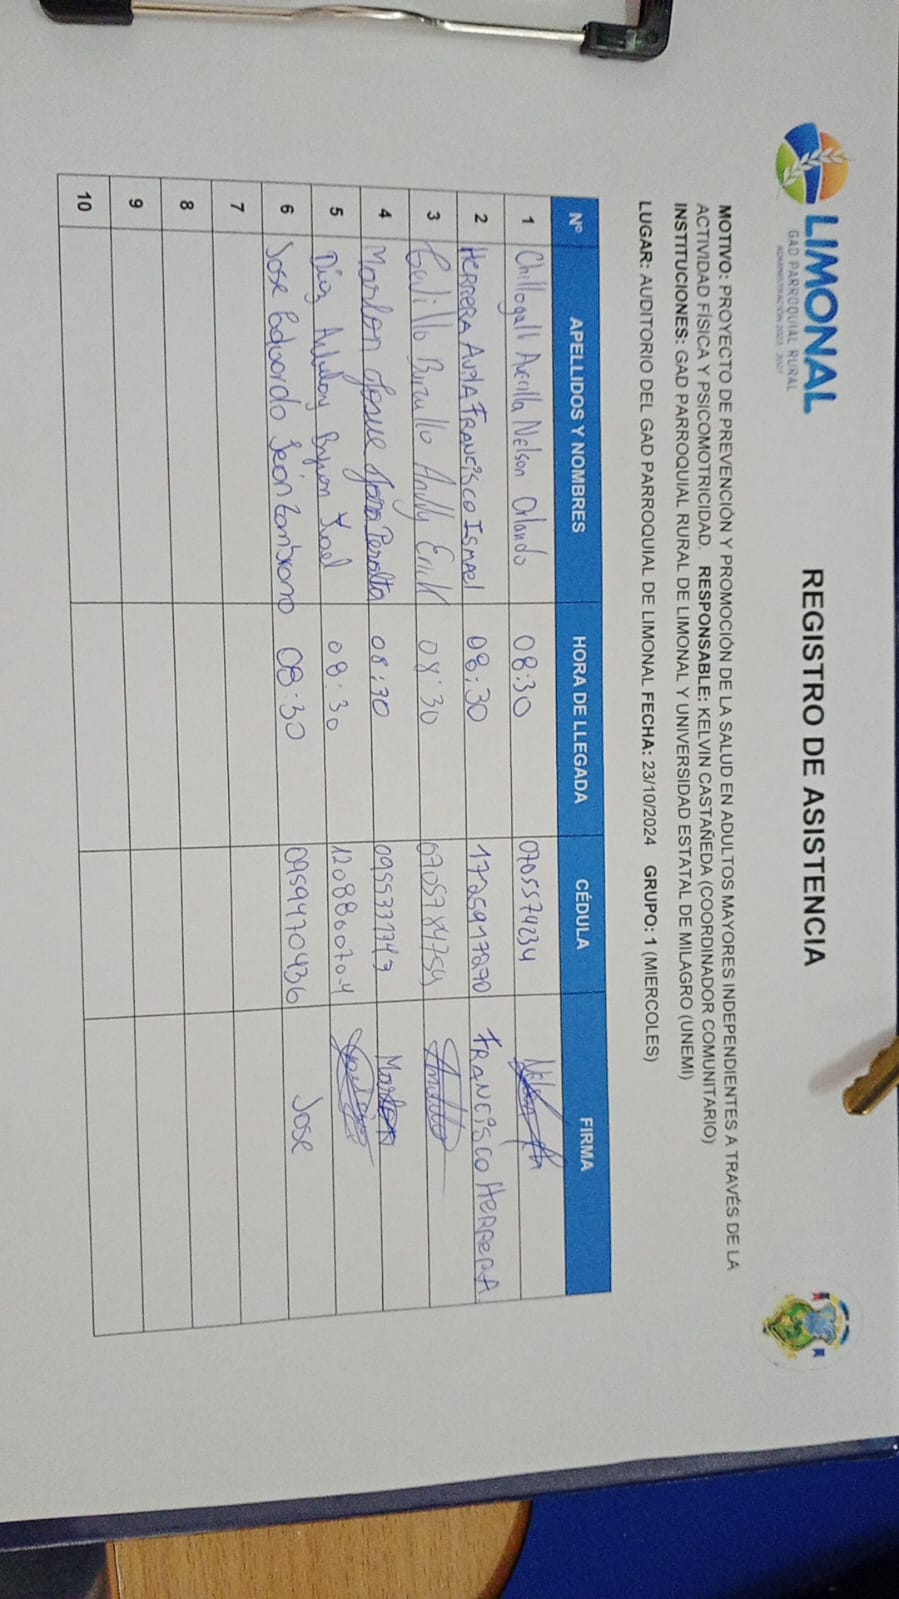 LIMONAL
GAD PARROQUIAL RURAL
ADMINISTRACIÓN 2023 - 2027
REGISTRO DE ASISTENCIA
MOTIVO: PROYECTO DE PREVENCIÓN Y PROMOCIÓN DE LA SALUD EN ADULTOS MAYORES INDEPENDIENTES A TRAVÉS DE LA
ACTIVIDAD FÍSICA Y PSICOMOTRICIDAD. RESPONSABLE: KELVIN CASTAÑEDA (COORDINADOR COMUNITARIO)
INSTITUCIONES: GAD PARROQUIAL RURAL DE LIMONAL Y UNIVERSIDAD ESTATAL DE MILAGRO (UNEMI)
LUGAR: AUDITORIO DEL GAD PARROQUIAL DE LIMONAL FECHA: 23/10/2024 GRUPO: 1 (MIERCOLES)
Nº APELLIDOS Y NOMBRES HORA DE LLEGADA CÉDULA FIRMA
1 Nelson Orlando 08:30 0705574234
2 HERRERA FRANCISCO ISMAEL 08:30 1725917270 FRANCISCO HERRERA
3 Erick 08:30 0705784754
4 Marlon Josue Peralta 08:30 Marlon
5 Diaz 08:30 1208800704
6 Jose Eduardo 08:30 0959470436 Jose
7
8
9
10